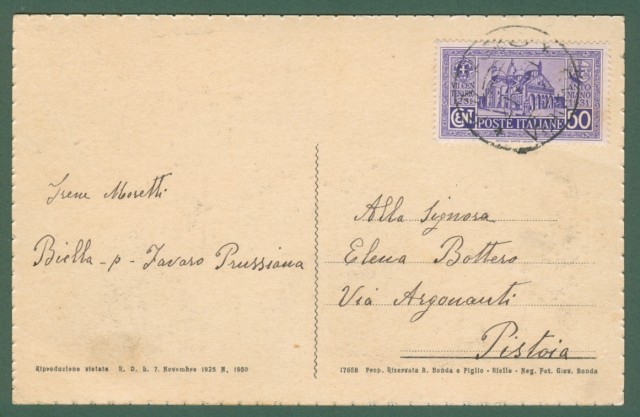 VII CENTENARIO
ANTONIANO
1231
1931
CENT POSTE ITALIANE 50
Irene Moretti
Biella - p - Favaro Prussiana
Alla Signora
Elena Bottero
Via Argonauti
Pistoia
Riproduzione vietata R. D. L. 7. Novembre 1925 N. 1950
17658 Prop. Riservata R. Bonda e Figlio - Biella - Neg. Fot. Giov. Bonda